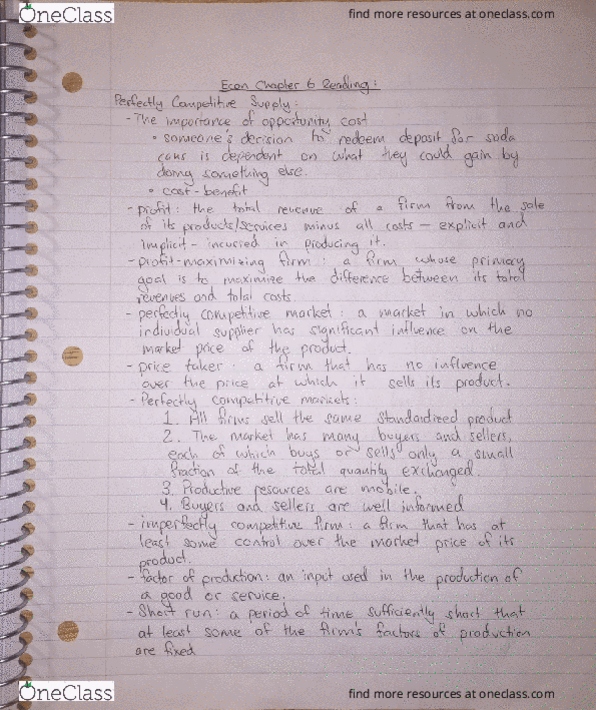 OneClass
find more resources at oneclass.com
Econ Chapter 6 Reading:
Perfectly Competitive Supply:
- The importance of opportunity cost
• someone's decision to redeem deposit for soda
cans is dependent on what they could gain by
doing something else.
• cost-benefit
- profit: the total revenue of a firm from the sale
of its products/services minus all costs – explicit and
implicit – incurred in producing it.
- profit-maximizing firm: a firm whose primary
goal is to maximize the difference between its total
revenues and total costs
- perfectly competitive market: a market in which no
individual supplier has significant influence on the
market price of the product.
- price taker: a firm that has no influence
over the price at which it sells its product.
- Perfectly competitive markets:
1. All firms sell the same standardized product
2. The market has many buyers and sellers,
each of which buys or sells only a small
fraction of the total quantity exchanged.
3. Productive resources are mobile.
4. Buyers and sellers are well informed
- imperfectly competitive firm: a firm that has at
least some control over the market price of its
product.
- factor of production: an input used in the production of
a good or service.
- Short run: a period of time sufficiently short that
at least some of the firm's factors of production
are fixed
OneClass
find more resources at oneclass.com